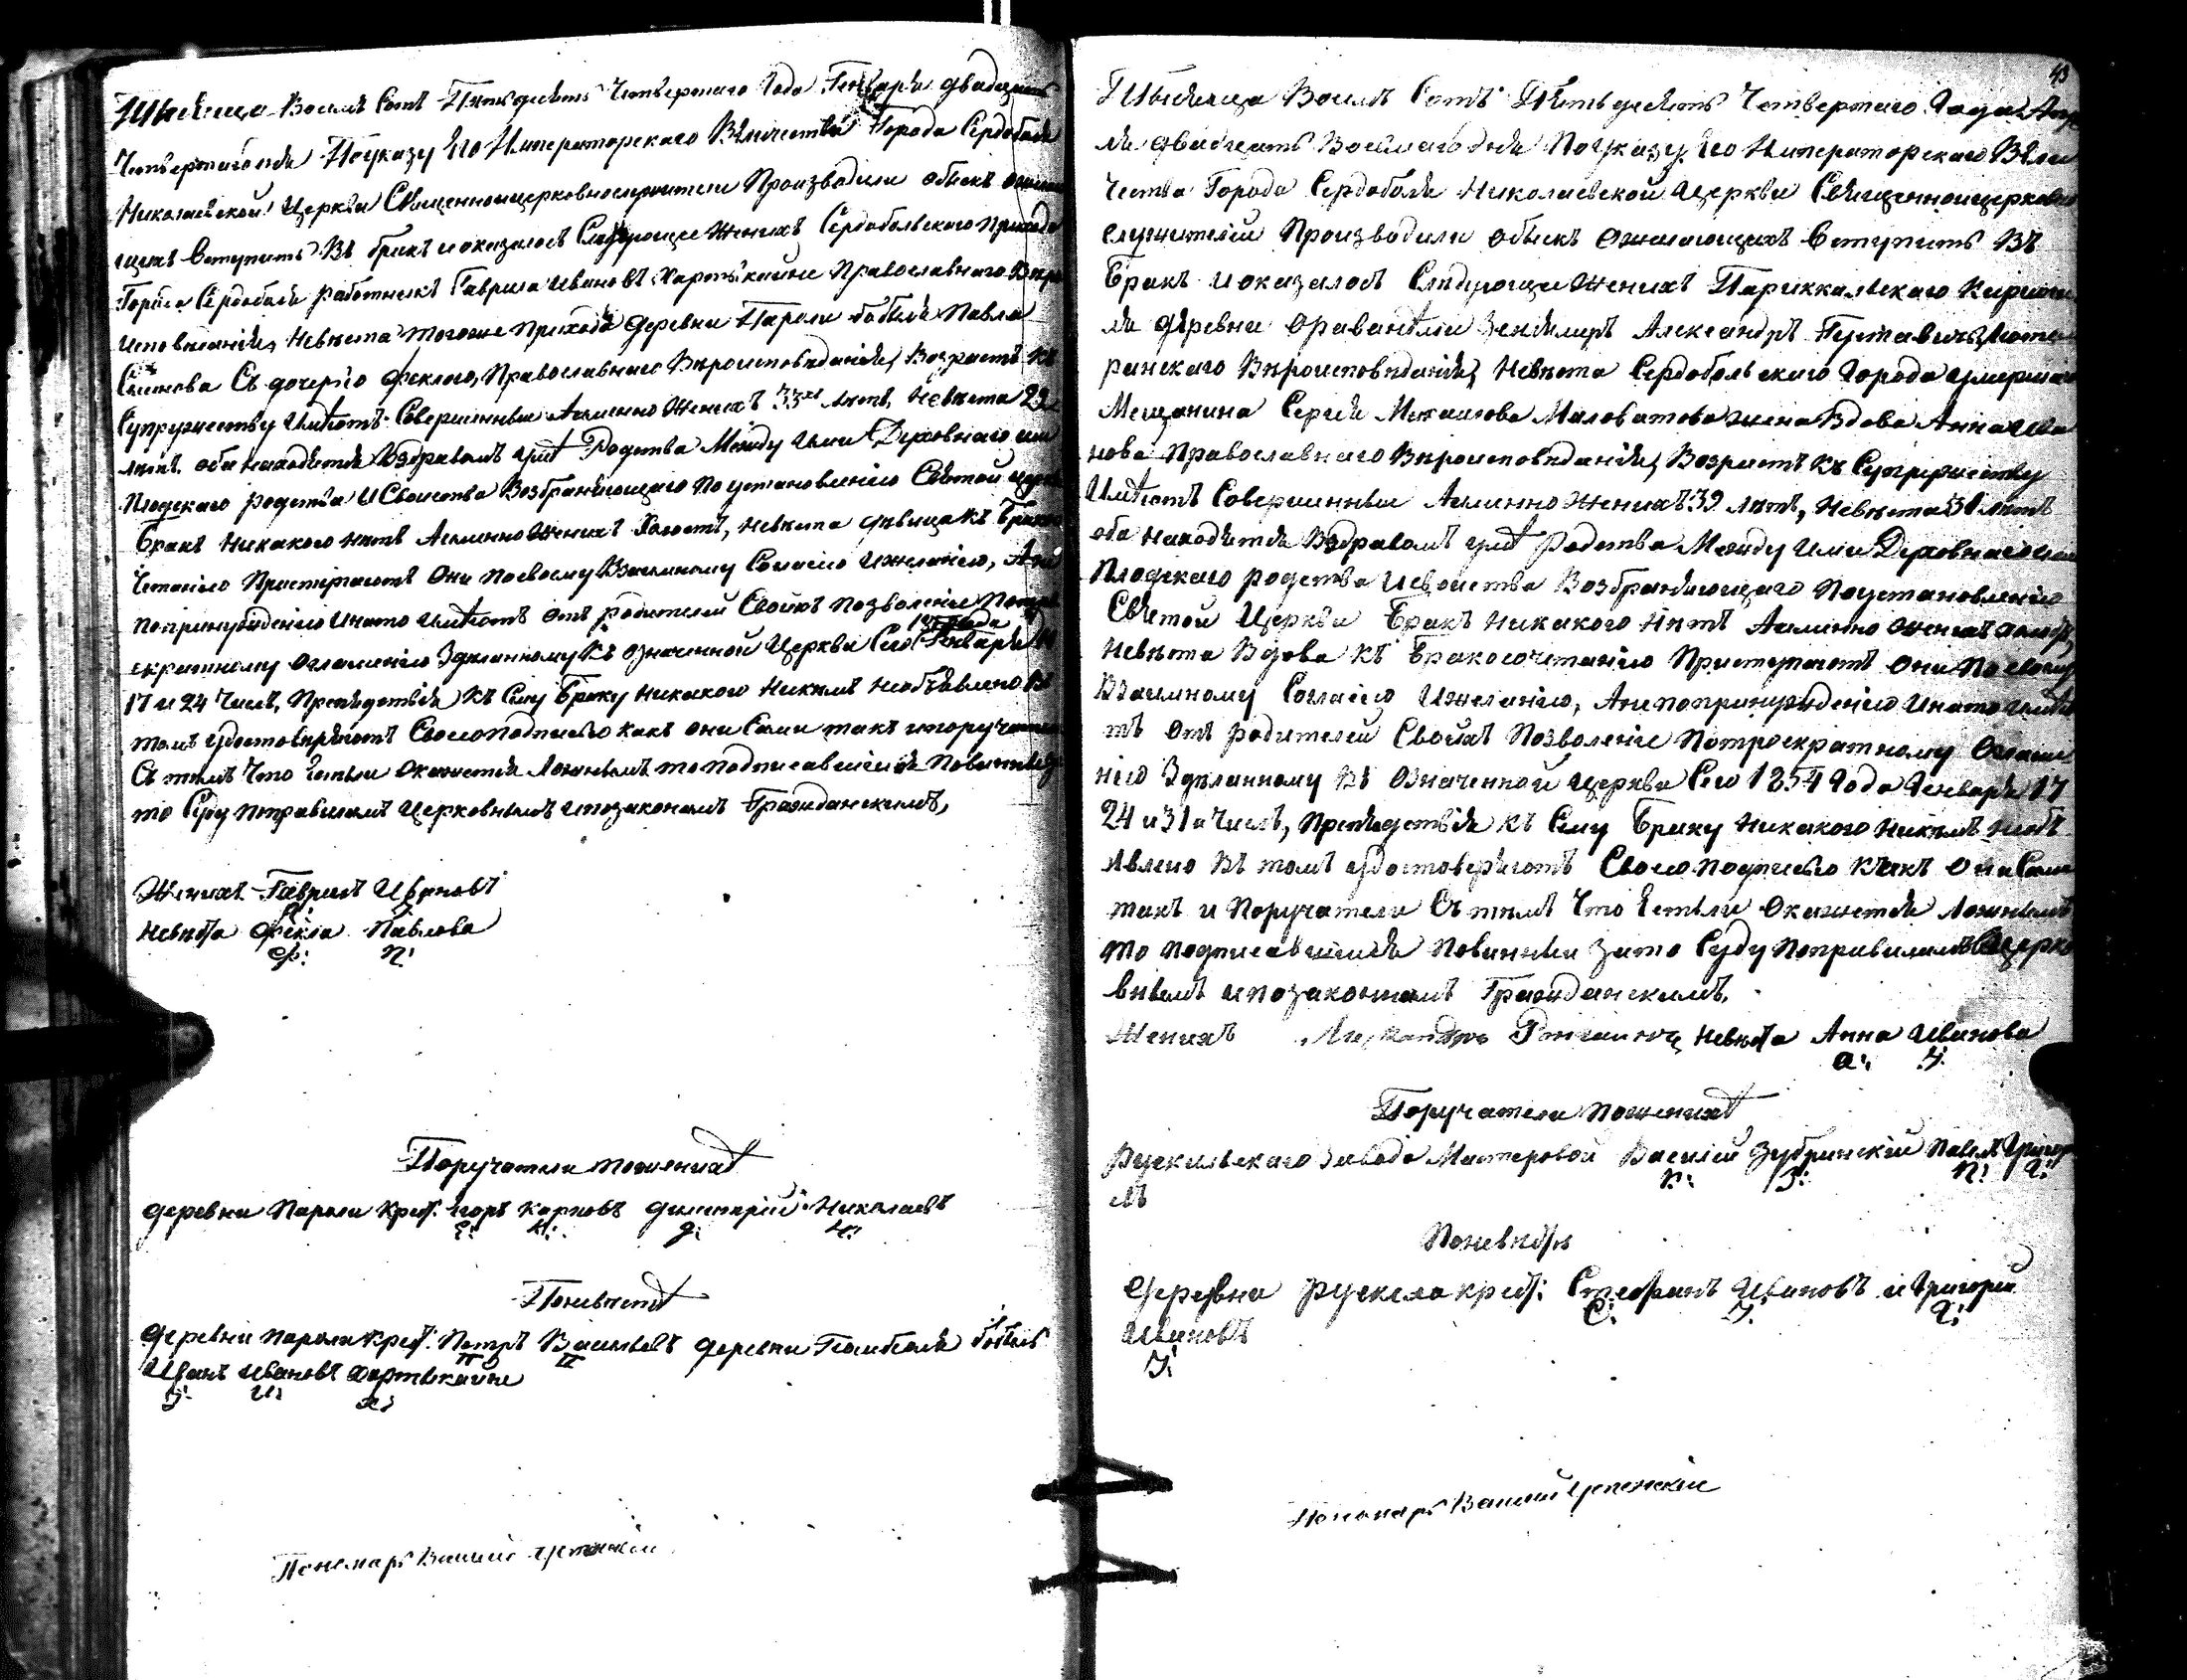 Тысяща Восемь Сотъ Пятьдесятъ Четвертаго Года Генваря двадцать
Четвертаго дня По указу Его Императорскаго Величества Города Сердоболя
Николаевской Церкви Священноицерковнослужители Производили обыскъ
щихъ Вступить Въ бракъ и оказалось Следующее Женихъ Сердобольскаго Прихода
Города Сердоболя работникъ Гаврила Ивановъ Православнаго
исповѣданія, Невѣста тогоже Прихода деревни Пароли бобыля Павла
Семенова Съ дочерью Феклою, Православнаго Вѣроисповѣданія, Возрастъ Къ
Супружеству Имѣютъ Совершенные Аименно Женихъ 33хъ лѣтъ, Невѣста 22
лѣтъ. оба находятся Въздравомъ умѣ Родства Между ими Духовнаго или
Плодскаго родства И Свойства Возбраняющаго По установленію Святой церк
Бракъ Никакого нѣтъ Аименно Женихъ Холостъ, невѣста дѣвица Къ Брако
Четанію Приступаютъ Они Посвоему Взаимному Согласію Ижеланію, Ане
По принужденію Инато Имѣютъ отъ родителей Своихъ позволеніе Потрое
года
скратному оглашенію Зделанному Въ означенной Церкви Сего Генваря
17 и 24 Числъ, Препятствія Къ Сему Браку Никакого Никемъ Необъявлено Въ
томъ удостоверяютъ Своеюподписью какъ они Сами такъ и поручатели
Съ темъ Что Естьли Окажется Ложнымъ то Подписавшіися Повинны за
то Суду Поправиламъ Церковнымъ Ипозаконамъ Гражданскимъ,
Женихъ Гаврилъ Ивановъ
Невѣста Фекла Павлова
Ф: П:
Поручатели поженихѣ
деревни Пароли Крест: Егоръ Карповъ Дмитрій Николаевъ
Е: К: Д: Н:
Поневѣстѣ
деревни Пароли Крест: Петръ Васильевъ деревни бобыль
П В
Иванъ Ивановъ
I: И: Х:
Пономарь Василій Успенскій
43
Тысяща Восемь Сотъ Пятьдесятъ Четвертаго Года Апре
ля двадцать Восьмаго дня По указу Его Императорскаго Вели
чества Города Сердоболя Николаевской Церкви Священноицерковно
служители Производили обыскъ ожелающихъ Вступить Въ
Бракъ Иоказалось Следующее Женихъ Париккальскаго Кирхшпи
ля деревни Александръ Люте
ранскаго Вѣроисповѣданія, Невѣста Сердобольскаго Города умершаго
Мещанина Сергея Михаилова Маловатова жена Вдова Анна Ива
нова Православнаго Вѣроисповѣданія, Возрастъ Къ Супружеству
Имѣютъ Совершенные Аименно Женихъ 39 лѣтъ, Невѣста 31 лѣтъ
оба находятся Въздравомъ умѣ родства Между ими Духовнагоили
Плодскаго родства Исвойства Возбраняющаго Поустановленію
Святой Церкви Бракъ Никакого нѣтъ Аименно Женихъ
Невѣста Вдова Къ Бракосочетанію Приступаютъ Они Посвоему
Взаимному Согласію Ижеланію, Анепопринужденію Инато Имѣю
тъ Отъ родителей Своихъ Позволеніе Потроекратному Оглаше
нію Зделанному Въ Означенной Церкви Сего 1854 Года Генваря 17
24 и 31 Числъ, Препятствія Къ Сему Браку Никакого Никемъ Необъ
явлено Въ томъ удостоверяютъ Своею Подписью Какъ Они Сами
такъ и Поручатели Съ темъ Что Естьли Окажется Ложнымъ
то Подписавшіися Повинны Зато Суду Поправиламъ Церко
внымъ ипозаконамъ Гражданскимъ.
Женихъ Невѣста Анна Иванова
А: I:
Поручатели Поженихѣ
Рускильскаго Завода Мастеровой Василій Зубринскій Павелъ
В: З: П: Г:
Поневѣстѣ
деревни Рускела крест: Стефанъ Ивановъ и Григорій
С: I: Г:
Ивановъ
I:
Пономарь Василій Успенскій